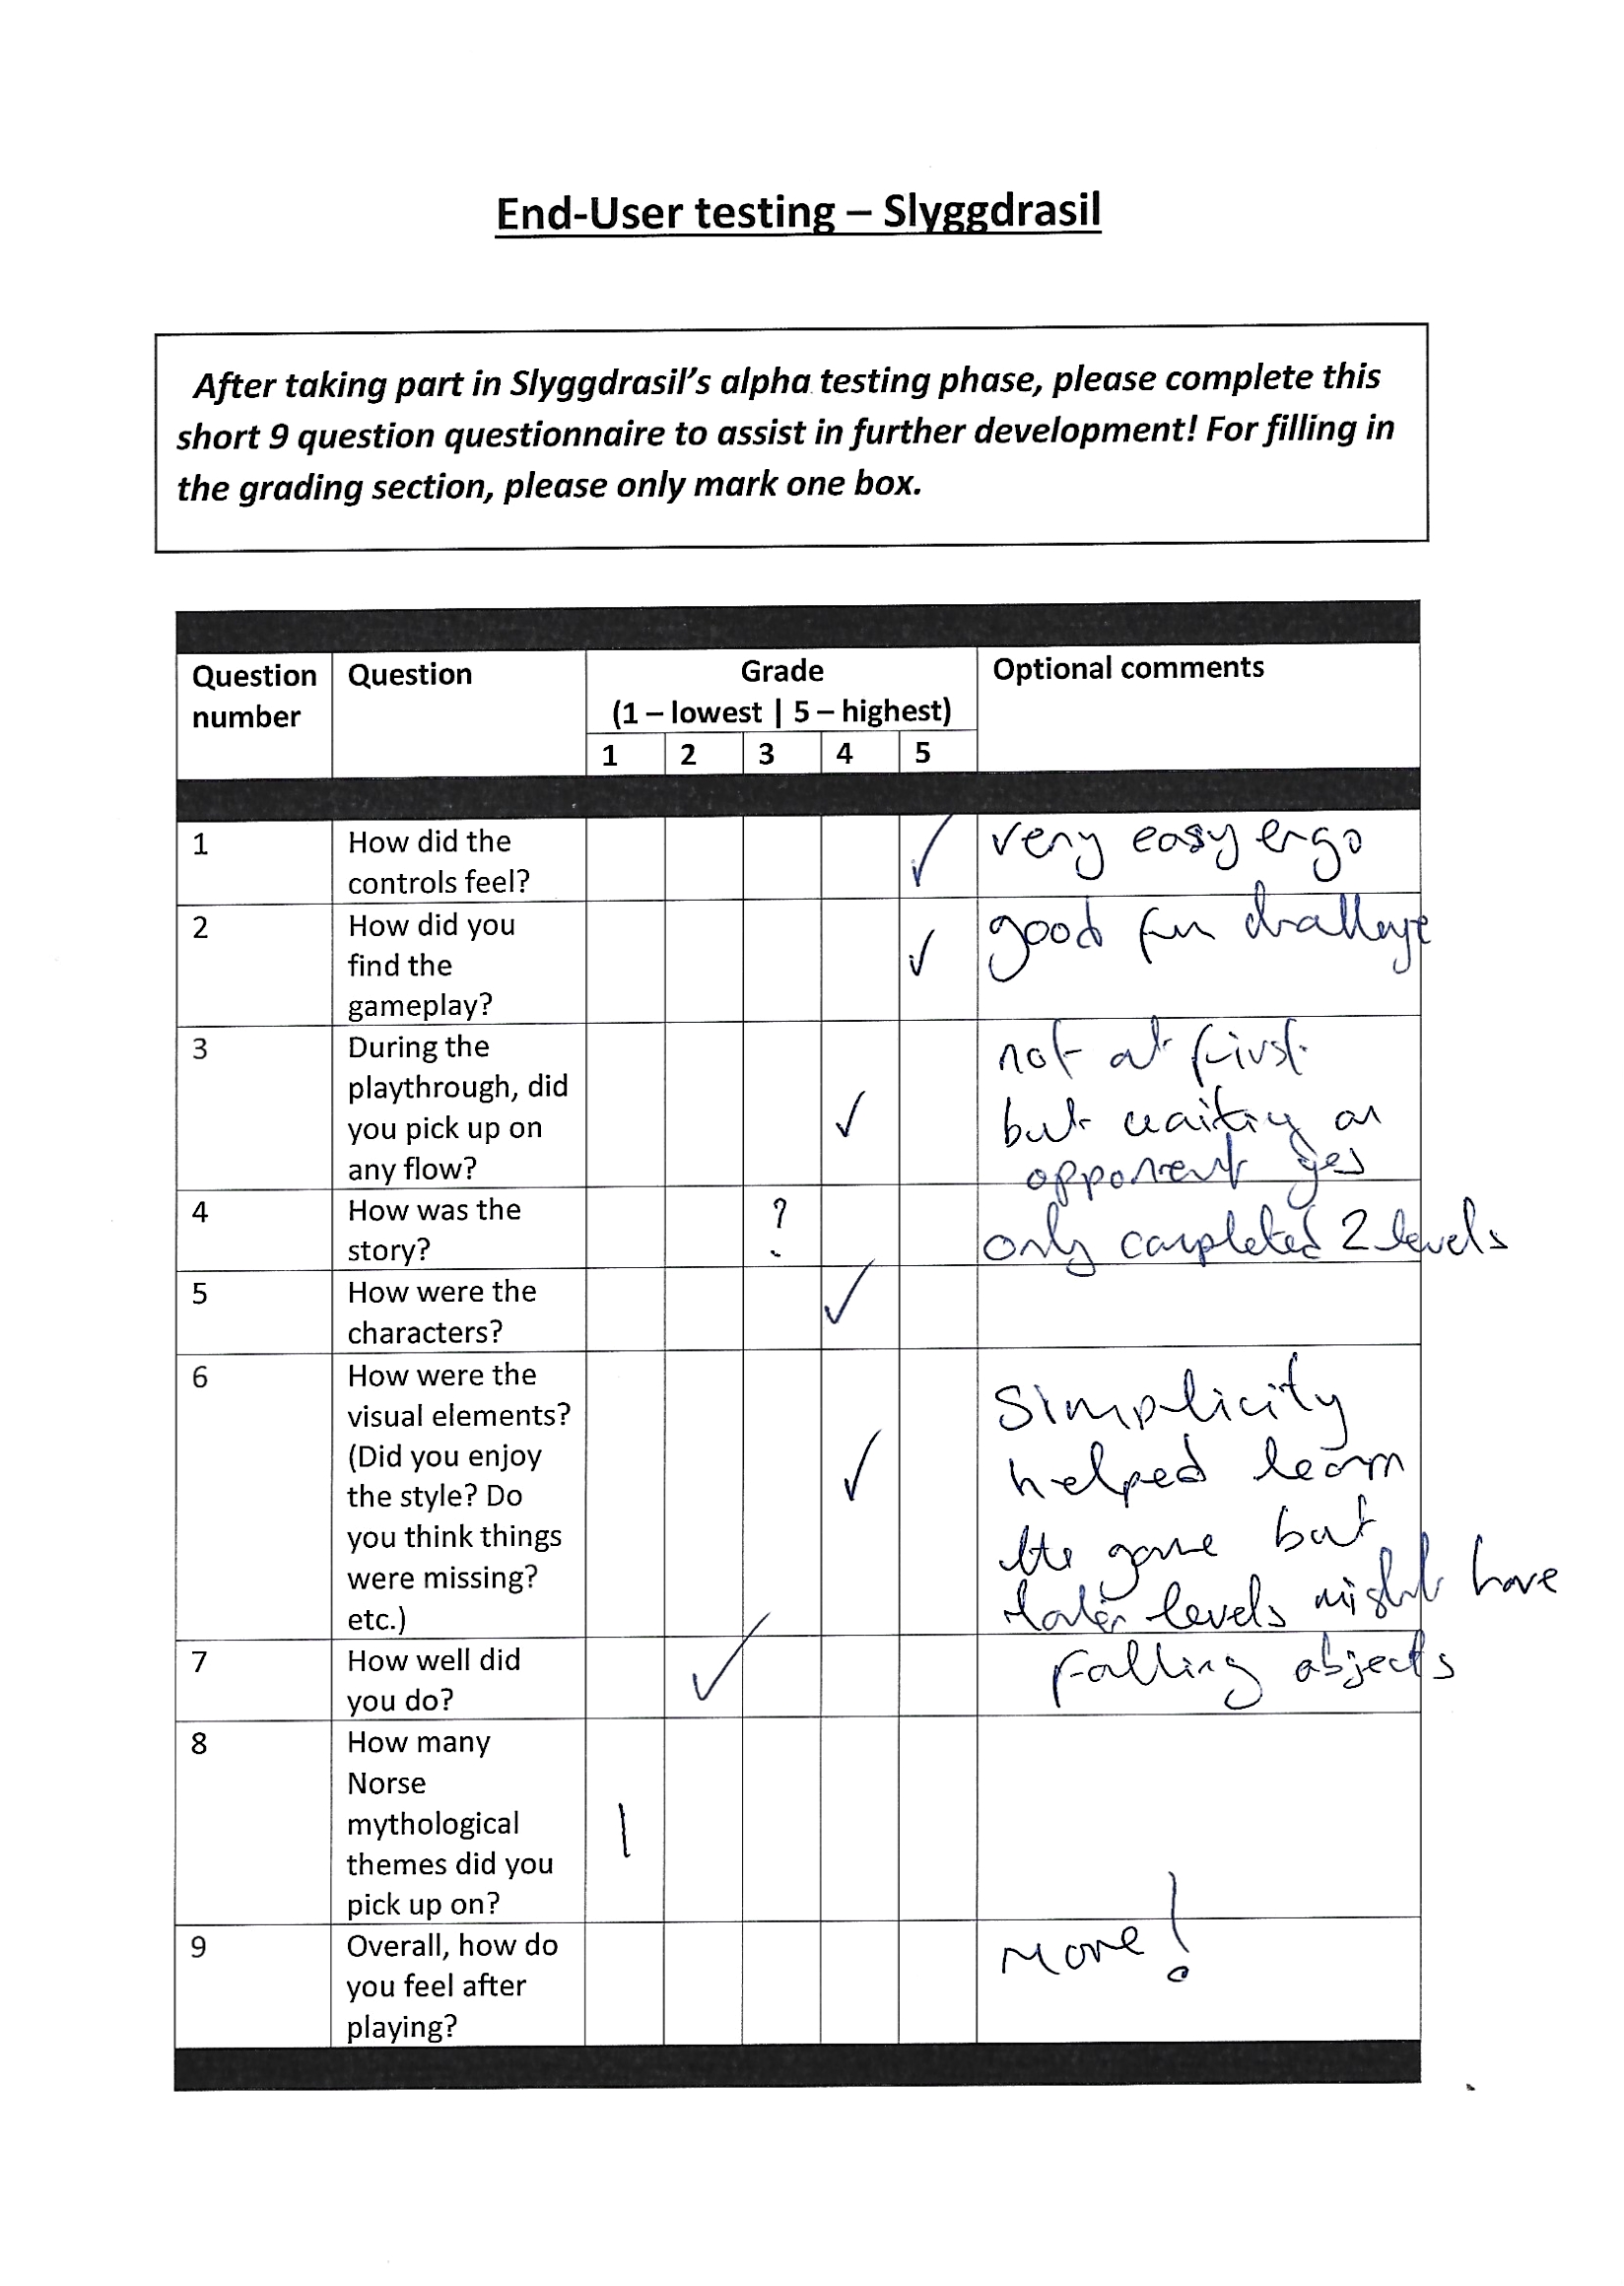 End-User testing – Slyggdrasil
After taking part in Slyggdrasil's alpha testing phase, please complete this
short 9 question questionnaire to assist in further development! For filling in
the grading section, please only mark one box.
Question number
Question
Grade
(1 – lowest | 5 – highest)
Optional comments
1 2 3 4 5
1
How did the
controls feel?
✓
very easy ergo
2
How did you
find the
gameplay?
✓
good fun challenge
3
During the
playthrough, did
you pick up on
any flow?
✓
not at first
but waiting on
opponent yes
4
How was the
story?
?
only completed 2 levels
5
How were the
characters?
✓
6
How were the
visual elements?
(Did you enjoy
the style? Do
you think things
were missing?
etc.)
✓
Simplicity
helped learn
the game but
later levels might have
falling objects
7
How well did
you do?
✓
8
How many
Norse
mythological
themes did you
pick up on?
1
9
Overall, how do
you feel after
playing?
More!